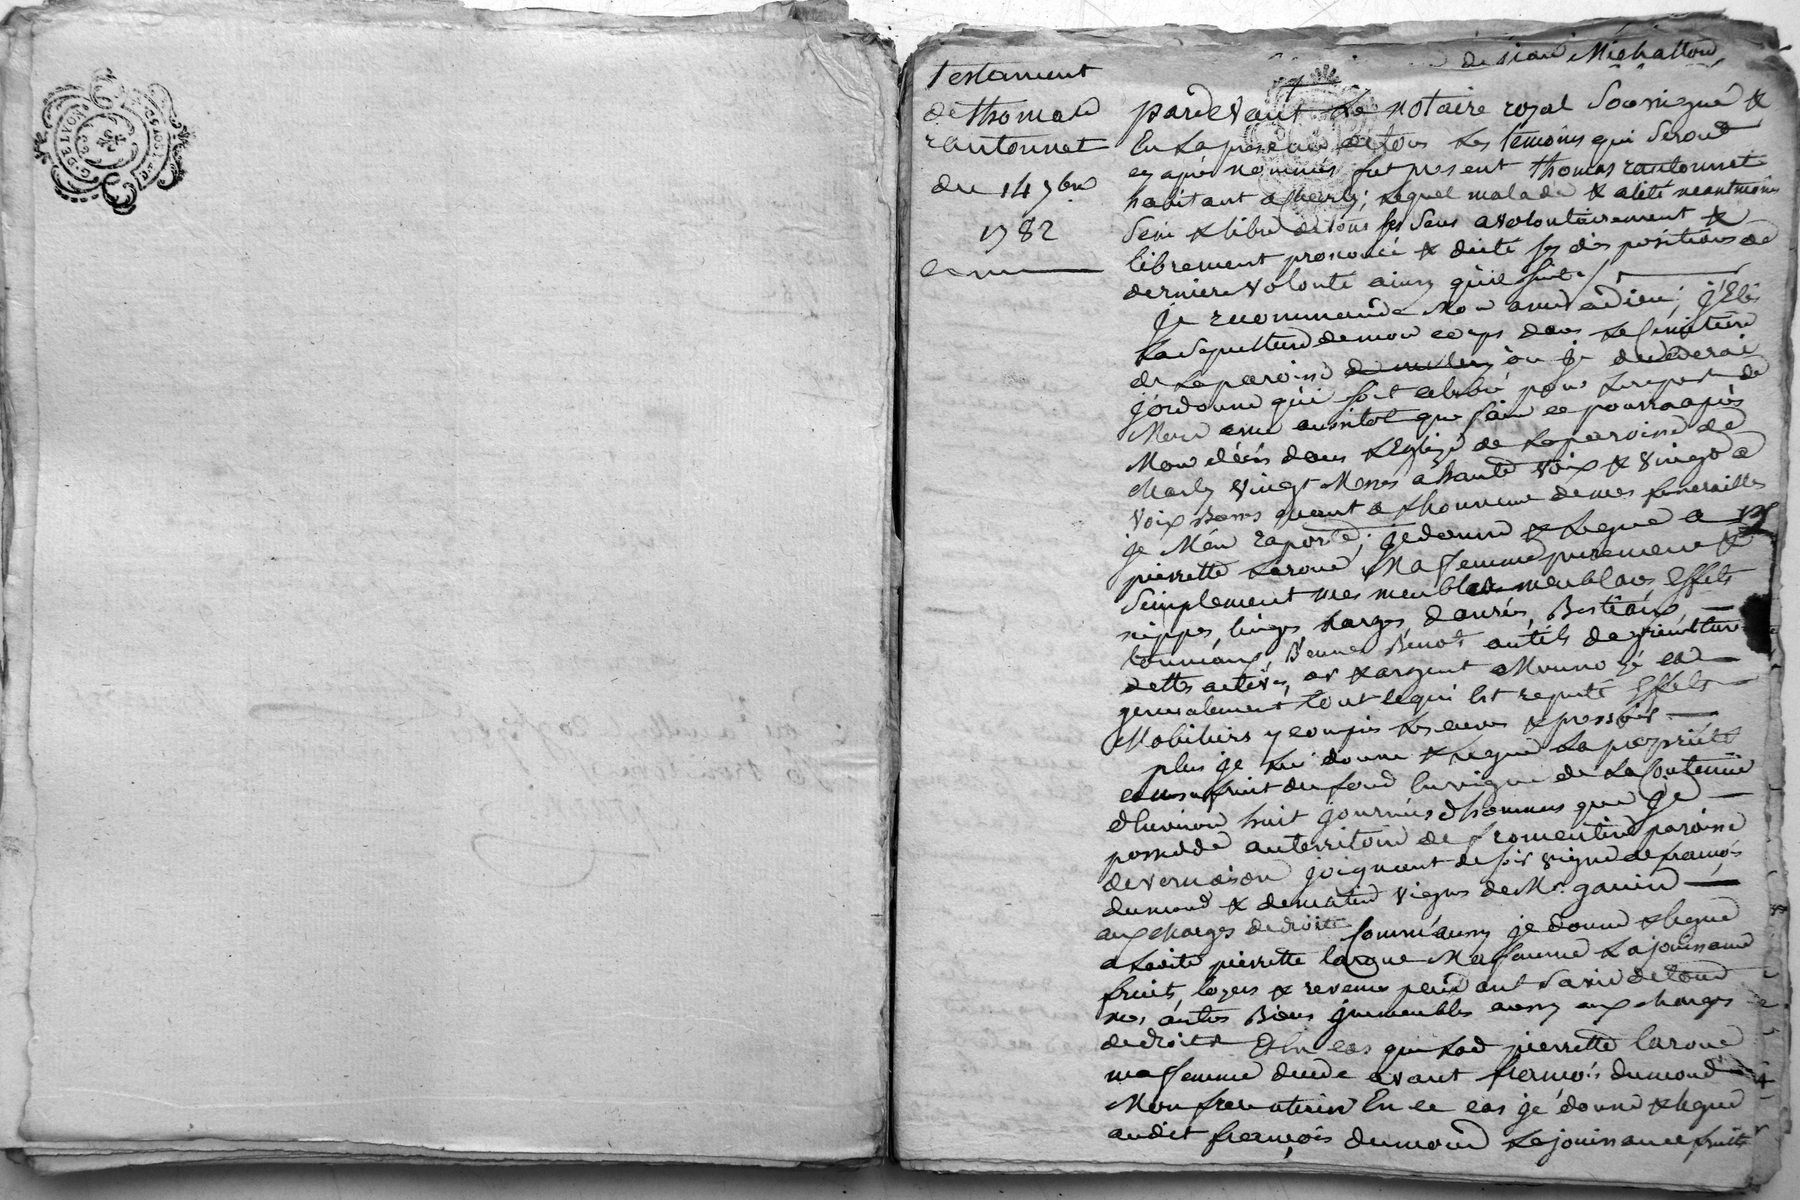 G. DE LYON
de jean Michallon
Testament
de thomas
rantonnet
du 14 7bre
1782
pardevant Le notaire royal Soussigné &
En La presence de tous Les temoins qui Seront
cy après nommés fut present thomas rantonnet
habitant a charly; Lequel malade & alité neantmoins
Sein & libre de tous ses Sens a volontairement &
librement prononcé & dicté ses dispositions de
derniere volonté ainsy qu'il suit /
Je recommande Mon ame a dieu; j'Elis
La Sepulture de mon corps dans Le Cimetiere
de La paroisse ou je decederai
j'ordonne qu'il soit celebré pour Le repos de
Mon ame aussitot que faire ce pourra après
Mon décès dans L'Eglise de La paroisse de
charly vingt Messes a haute voix & vingt a
voix Basses quant a L'honneur de mes funerailles
je M'en raporte; je donne & Legue a
pierrette Laroue Ma femme purement &
Simplement mes meubles meublans Effets
nippes, linges, hardes, danrées, Bestiaux,
tonneaux Bennes Benot outils d'agriculture
dettes actives, or & argent Monnoyé et
generalement tout ce qui Est reputé Effets
Mobiliers y compris Les cuves & pressoir
plus je Lui donne & Legue La proprieté
et usufruit du fond En vigne de La Contenue
d'Environ huit journées d'hommes que je
possede au territoire de fromentin paroisse
de vernaison joignant de soir vigne de françois
dumond & de matin vignes de Mr. gavin
aux charges de droits Comme aussy je donne & legue
a Ladite pierrette laroue Ma femme La jouissance
fruits, loyers & revenus pendant Sa vie de tous
mes autres Biens jmmeubles aussy aux charges
de droits Et En cas que Lad pierrette laroue
ma femme decede avant françois dumond
Mon frere uterin En ce cas je donne & legue
audit françois dumond La jouissance fruits